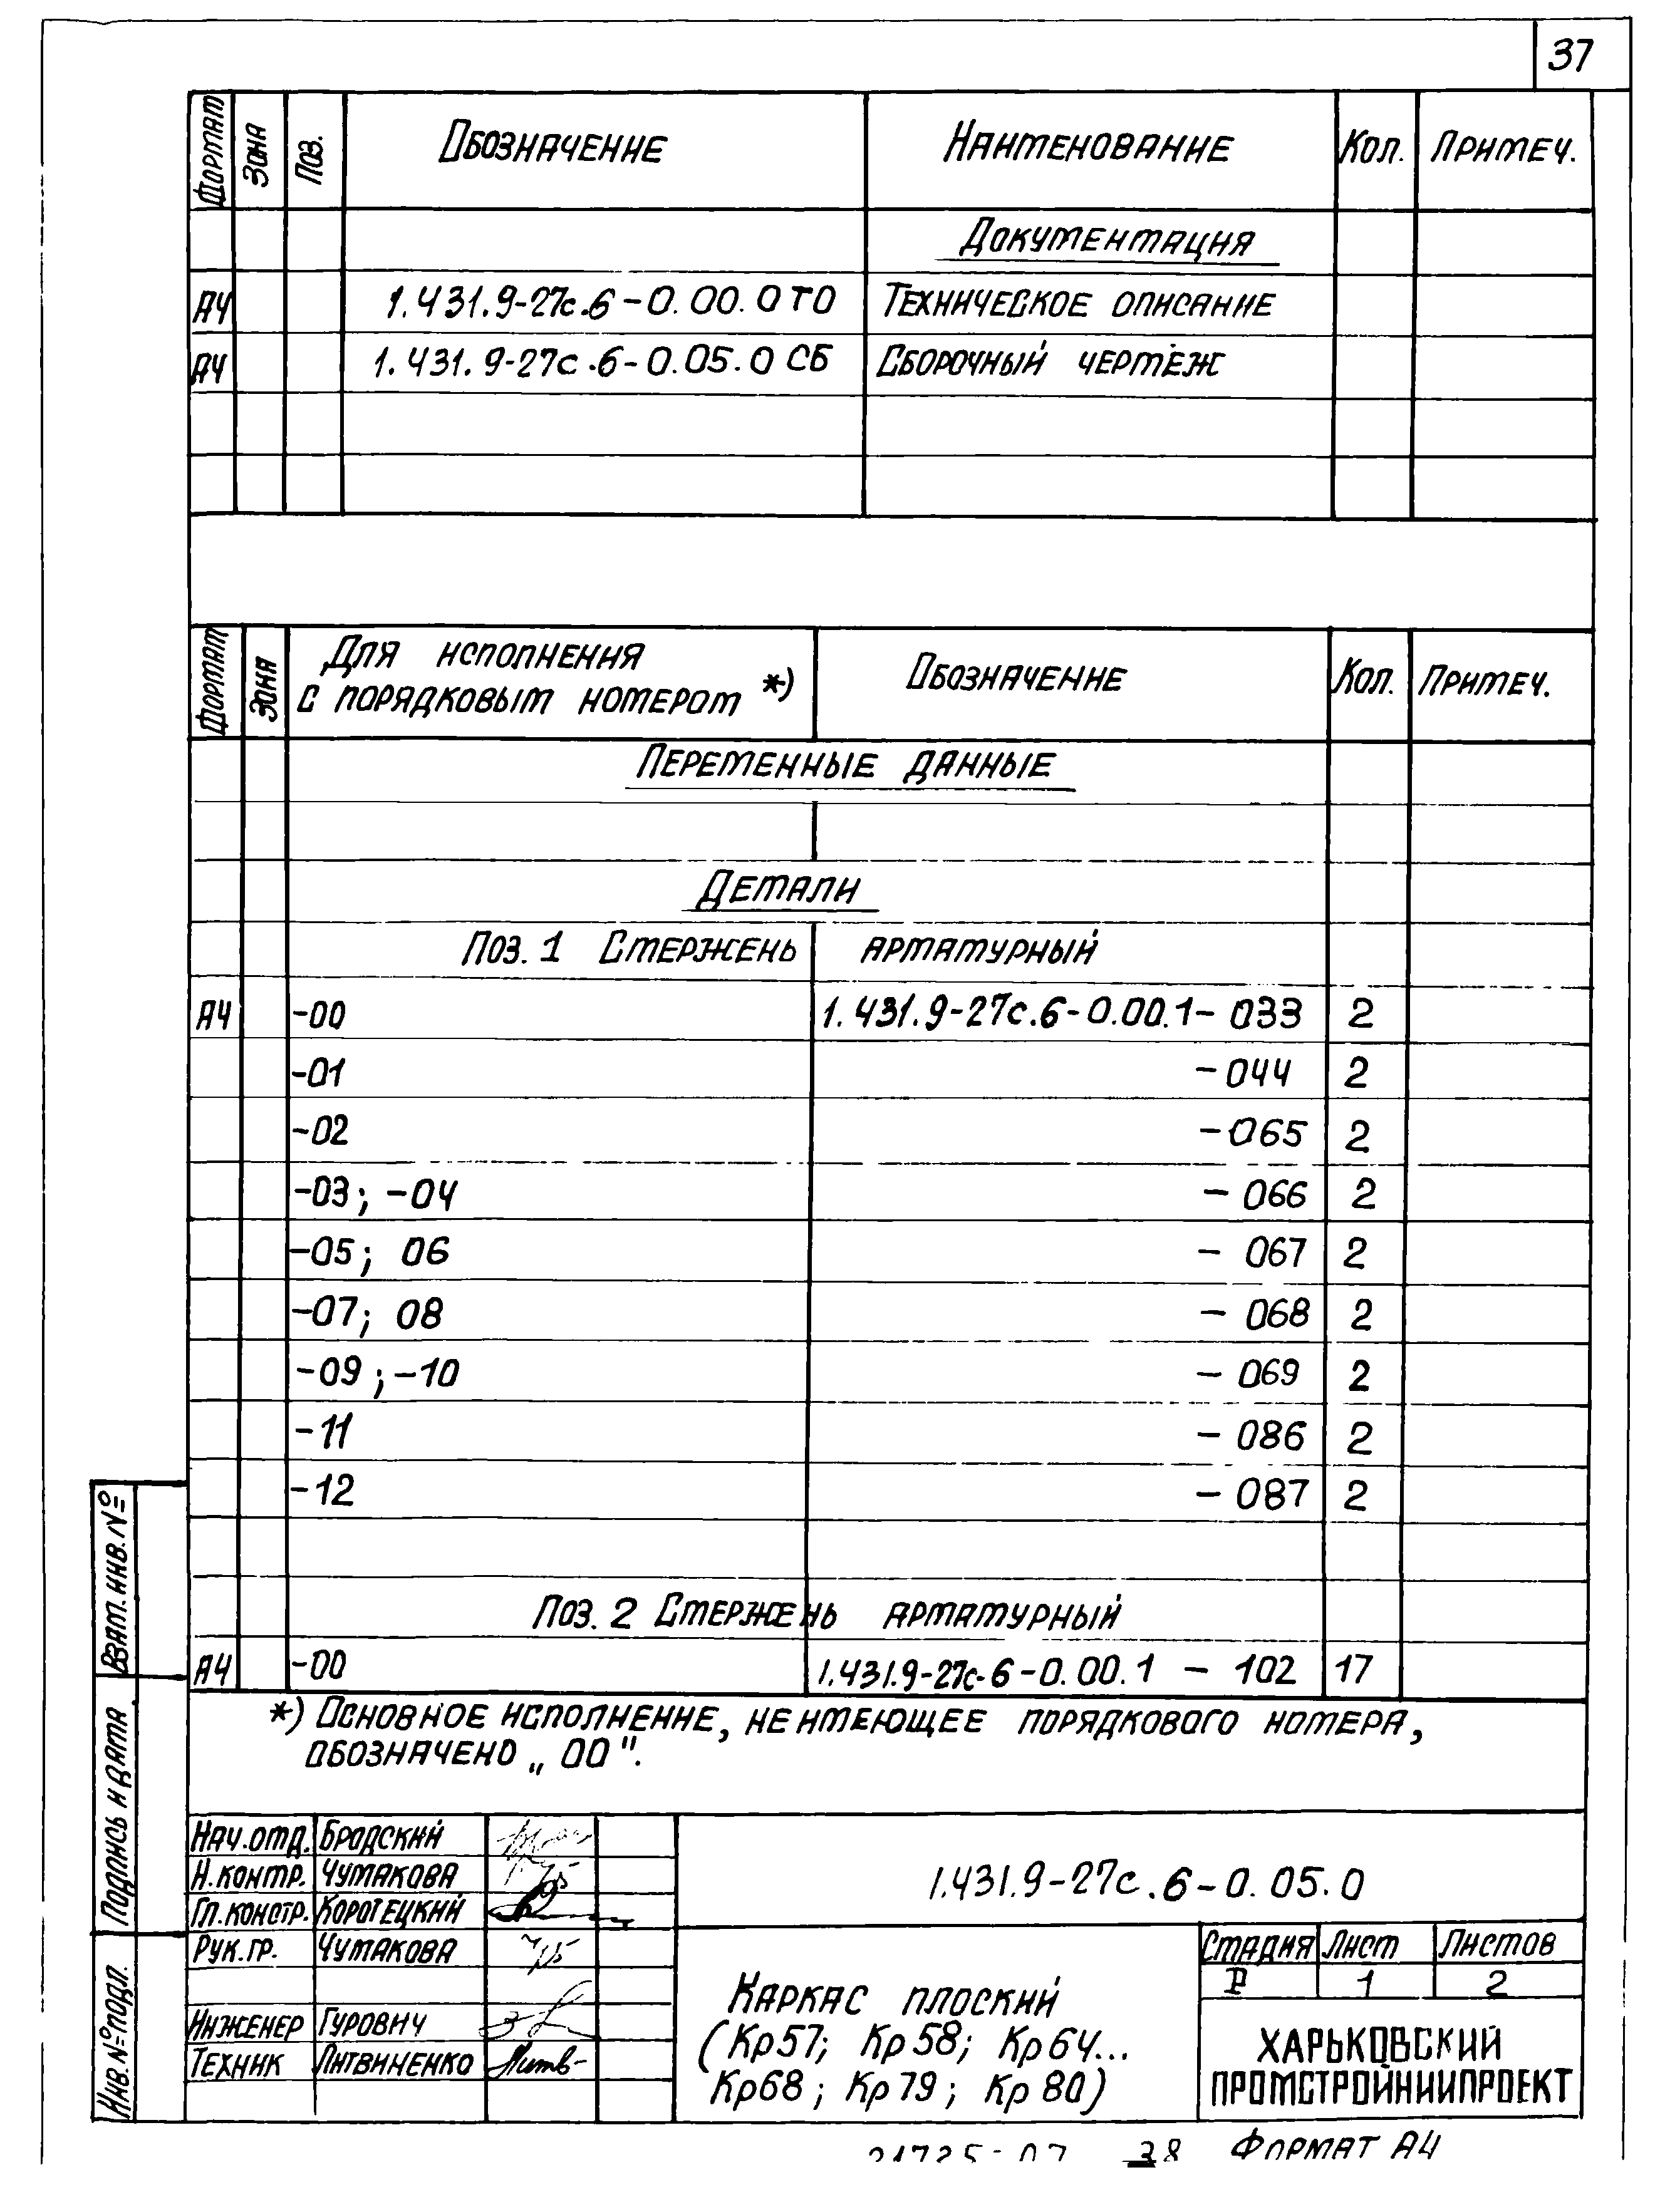 37
Формат Зона Поз. Обозначение Наименование Кол. Примеч.
Документация
А4 1.431.9-27с.6-0.00.0ТО Техническое описание
А4 1.431.9-27с.6-0.05.0СБ Сборочный чертёж
Формат Зона Для исполнения с порядковым номером *) Обозначение Кол. Примеч.
Переменные данные
Детали
Поз. 1 Стержень арматурный
А4 -00 1.431.9-27с.6-0.00.1-033 2
-01 -044 2
-02 -065 2
-03; -04 -066 2
-05; 06 -067 2
-07; 08 -068 2
-09; -10 -069 2
-11 -086 2
-12 -087 2
Поз. 2 Стержень арматурный
А4 -00 1.431.9-27с.6-0.00.1-102 17
*) Основное исполнение, не имеющее порядкового номера,
обозначено „00".
Взам. инв. №
Подпись и дата
Инв. № подл.
Нач. отд. Бродский
Н. контр. Чумакова
Гл. констр. Коротецкий
Рук. гр. Чумакова
Инженер Гурович
Техник Литвиненко
1.431.9-27с.6-0.05.0
Каркас плоский
(Кр57; Кр58; Кр64...
Кр68; Кр79; Кр80)
Стадия Лист Листов
Р 1 2
ХАРЬКОВСКИЙ
ПРОМСТРОЙНИИПРОЕКТ
38 Формат А4